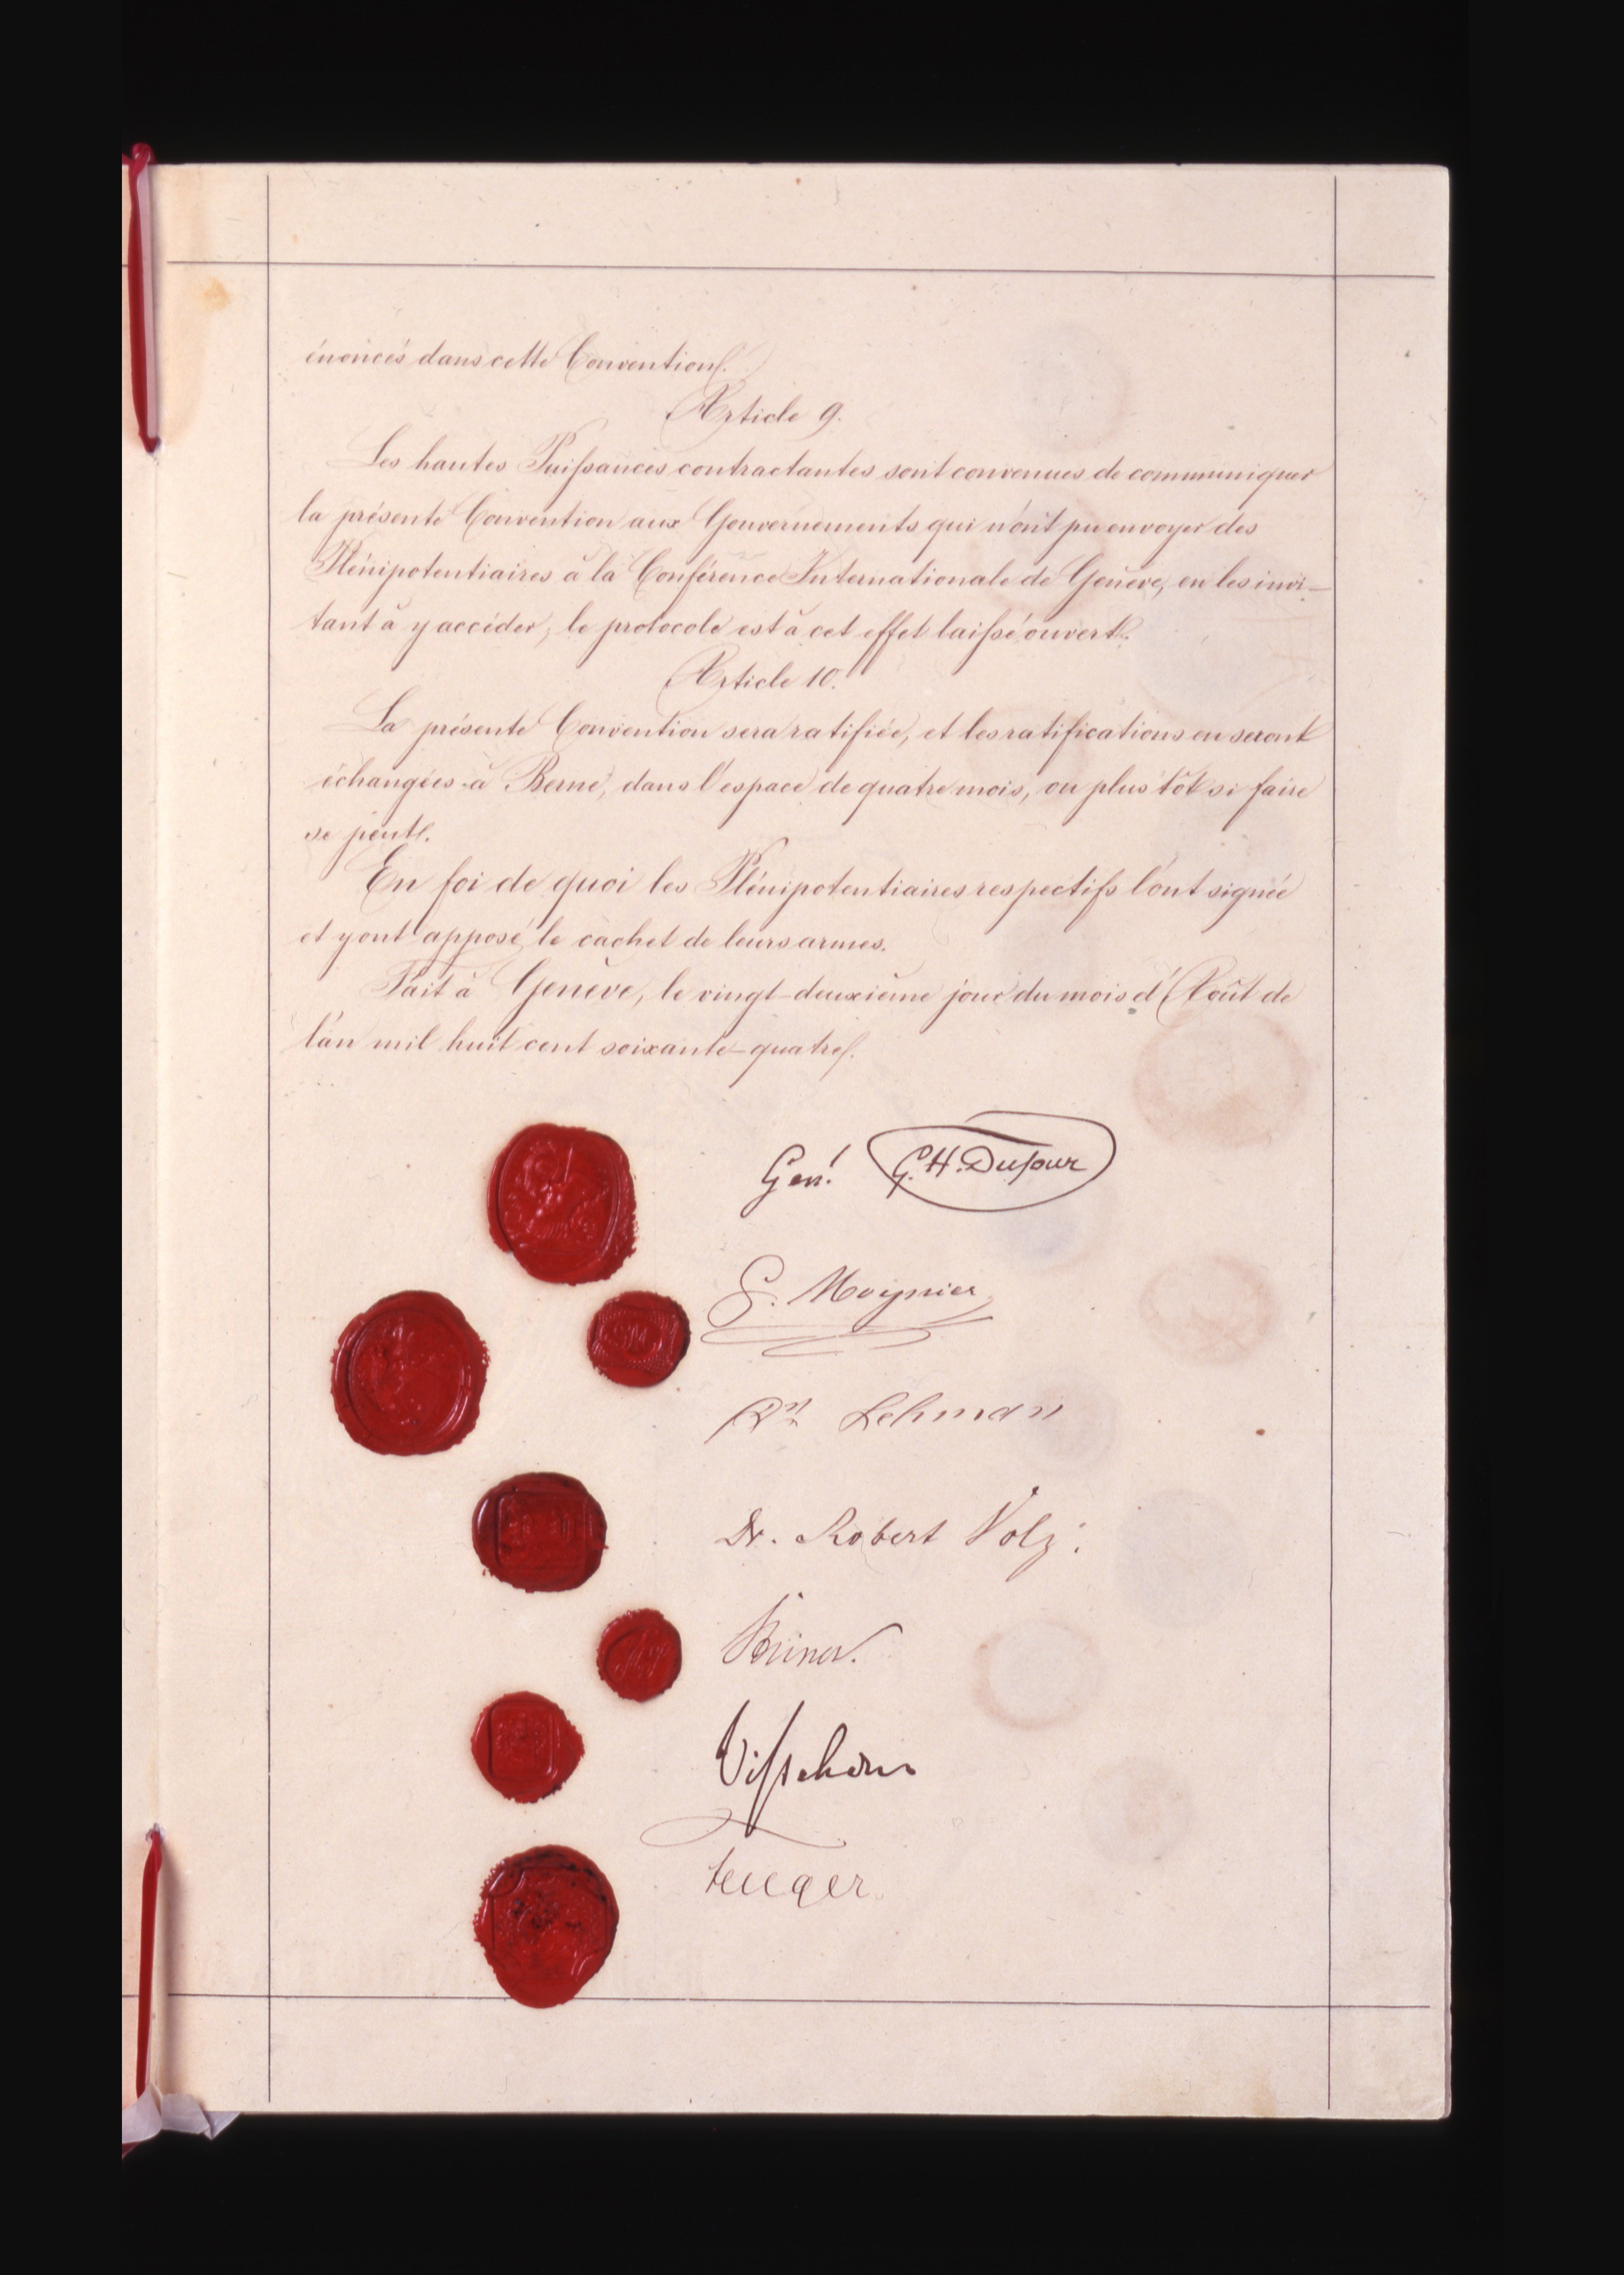 énoncés dans cette Convention.
Article 9.
Les hautes Puissances contractantes sont convenues de communiquer
la présente Convention aux Gouvernements qui n'ont pu envoyer des
Plénipotentiaires à la Conférence Internationale de Genève, en les invi-
tant à y accéder; le protocole est à cet effet laissé ouvert.
Article 10.
La présente Convention sera ratifiée, et les ratifications en seront
échangées à Berne, dans l'espace de quatre mois, ou plus tôt si faire
se peut.
En foi de quoi les Plénipotentiaires respectifs l'ont signée
et y ont apposé le cachet de leurs armes.
Fait à Genève, le vingt-deuxième jour du mois d'Août de
l'an mil huit cent soixante-quatre.
Gén! G. H. Dufour
G. Moynier
Lehmann
Dr. Robert Volz.
Steiner.
Visschers